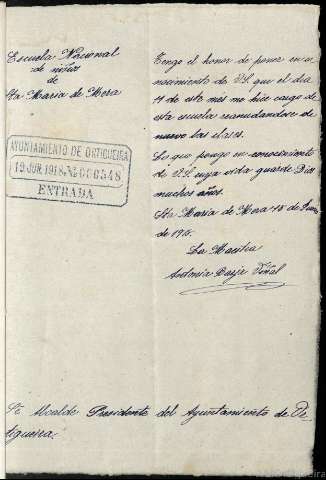 Escuela Nacional
de niños
de
Sta María de Mera
AYUNTAMIENTO DE ORTIGUEIRA
19 JUN. 1918 - Nº 000548
ENTRADA
Tengo el honor de poner en co-
nocimiento de V.S. que el día
11 de este mes me hice cargo de
esta escuela reanudandose de
nuevo las clases.
Lo que pongo en conocimiento
de V.S. cuya vida guarde Dios
muchos años.
Sta María de Mera 18 de Junio
de 191
La Maestra
Antonia
Sr. Alcalde Presidente del Ayuntamiento de Or-
tigueira.